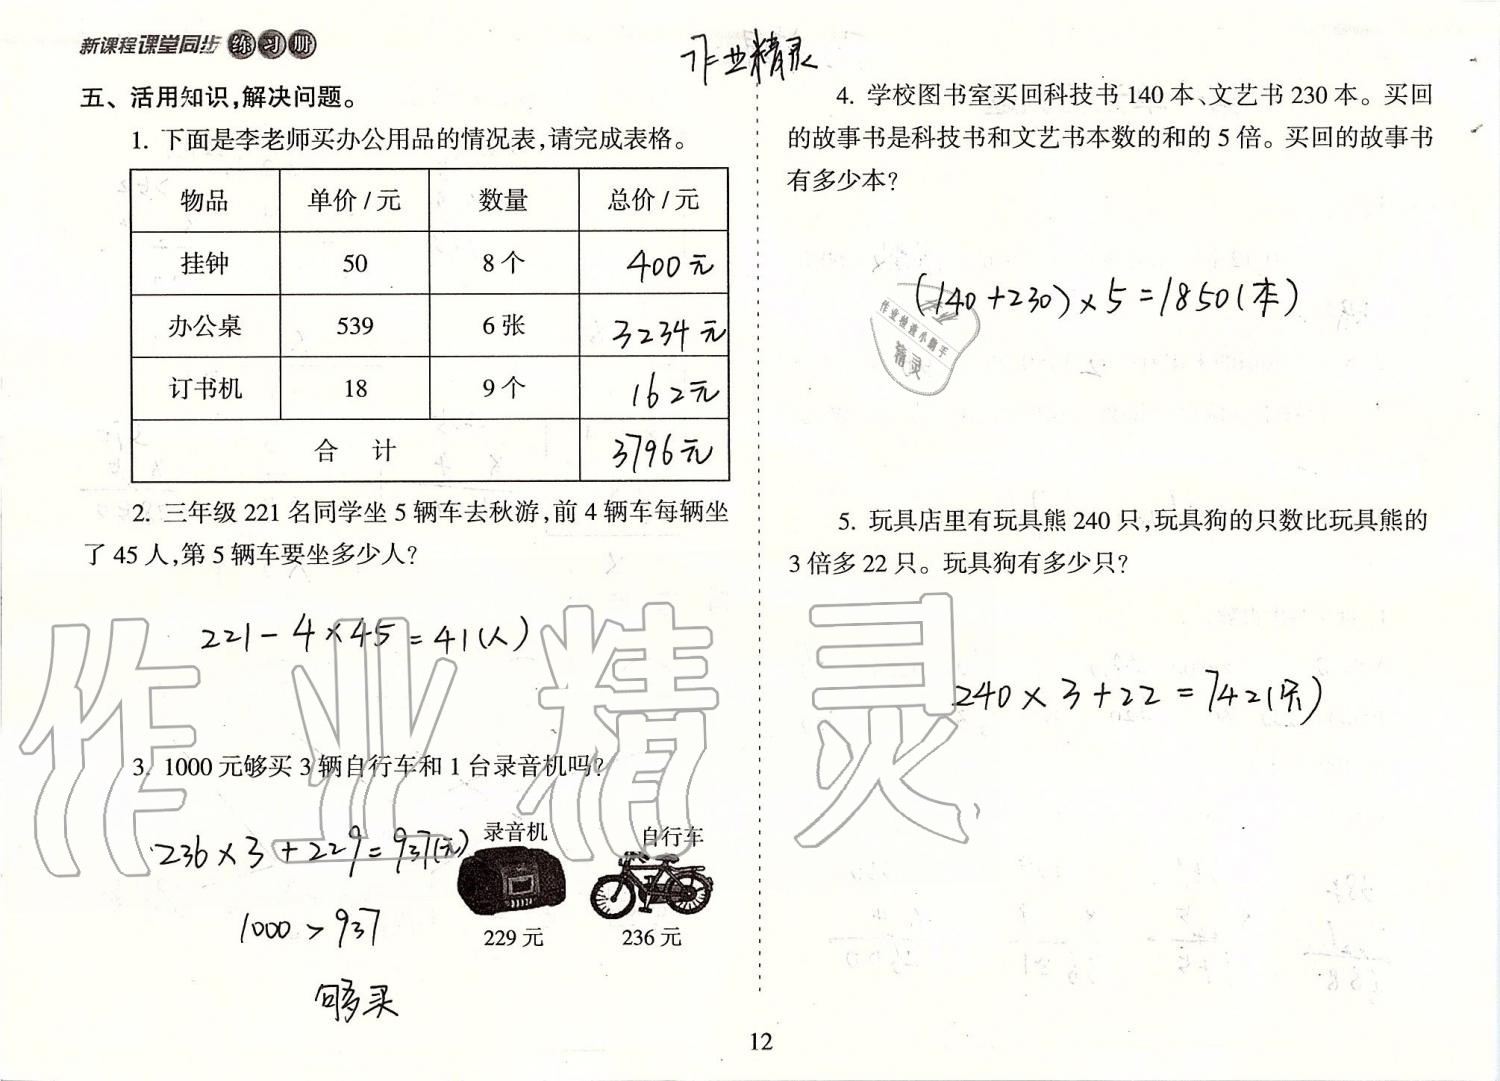 新课程课堂同步练习册
作业精灵
五、活用知识,解决问题。
1. 下面是李老师买办公用品的情况表,请完成表格。
物品 单价/元 数量 总价/元
挂钟 50 8个 400元
办公桌 539 6张 3234元
订书机 18 9个 162元
合 计 3796元
2. 三年级221名同学坐5辆车去秋游,前4辆车每辆坐
了45人,第5辆车要坐多少人?
221-4×45=41(人)
3. 1000元够买3辆自行车和1台录音机吗?
236×3+229=937(元)
1000>937
够买
录音机
229元
自行车
236元
4. 学校图书室买回科技书140本、文艺书230本。买回
的故事书是科技书和文艺书本数的和的5倍。买回的故事书
有多少本?
(140+230)×5=1850(本)
作业检查小助手
精灵
5. 玩具店里有玩具熊240只,玩具狗的只数比玩具熊的
3倍多22只。玩具狗有多少只?
240×3+22=742(只)
作业精灵
12